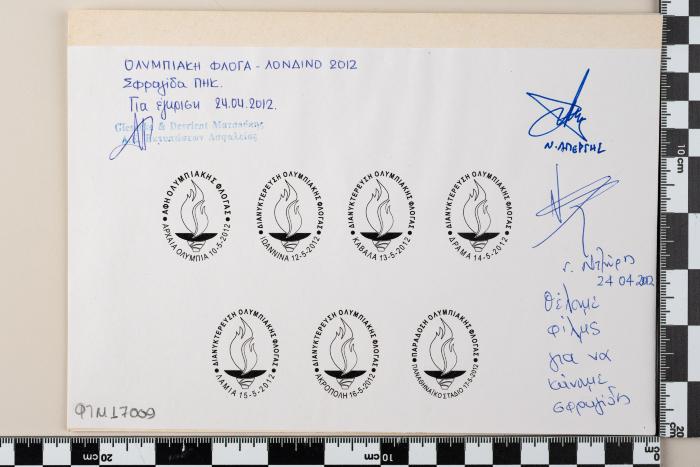 ΟΛΥΜΠΙΑΚΗ ΦΛΟΓΑ - ΛΟΝΔΙΝΟ 2012
Σφραγίδα ΠΗΚ.
Για έγκριση 24.04.2012.
& Devrient Ματσούκης
Α.Ε. Εκτυπώσεων Ασφαλείας
Ν. ΑΠΕΡΓΗΣ
24 04 2012
Θέλαμε
φιλμς
για να
κάναμε
σφραγίδες
• ΑΦΗ ΟΛΥΜΠΙΑΚΗΣ ΦΛΟΓΑΣ •
ΑΡΧΑΙΑ ΟΛΥΜΠΙΑ 10-5-2012
• ΔΙΑΝΥΚΤΕΡΕΥΣΗ ΟΛΥΜΠΙΑΚΗΣ ΦΛΟΓΑΣ •
ΙΩΑΝΝΙΝΑ 12-5-2012
• ΔΙΑΝΥΚΤΕΡΕΥΣΗ ΟΛΥΜΠΙΑΚΗΣ ΦΛΟΓΑΣ •
ΚΑΒΑΛΑ 13-5-2012
• ΔΙΑΝΥΚΤΕΡΕΥΣΗ ΟΛΥΜΠΙΑΚΗΣ ΦΛΟΓΑΣ •
ΔΡΑΜΑ 14-5-2012
• ΔΙΑΝΥΚΤΕΡΕΥΣΗ ΟΛΥΜΠΙΑΚΗΣ ΦΛΟΓΑΣ •
ΛΑΜΙΑ 15-5-2012
• ΔΙΑΝΥΚΤΕΡΕΥΣΗ ΟΛΥΜΠΙΑΚΗΣ ΦΛΟΓΑΣ •
ΑΚΡΟΠΟΛΗ 16-5-2012
• ΠΑΡΑΔΟΣΗ ΟΛΥΜΠΙΑΚΗΣ ΦΛΟΓΑΣ •
ΠΑΝΑΘΗΝΑΪΚΟ ΣΤΑΔΙΟ 17-5-2012
ΦΙΜ17009
20 cm
10 cm
cm 0
10 cm
20 cm